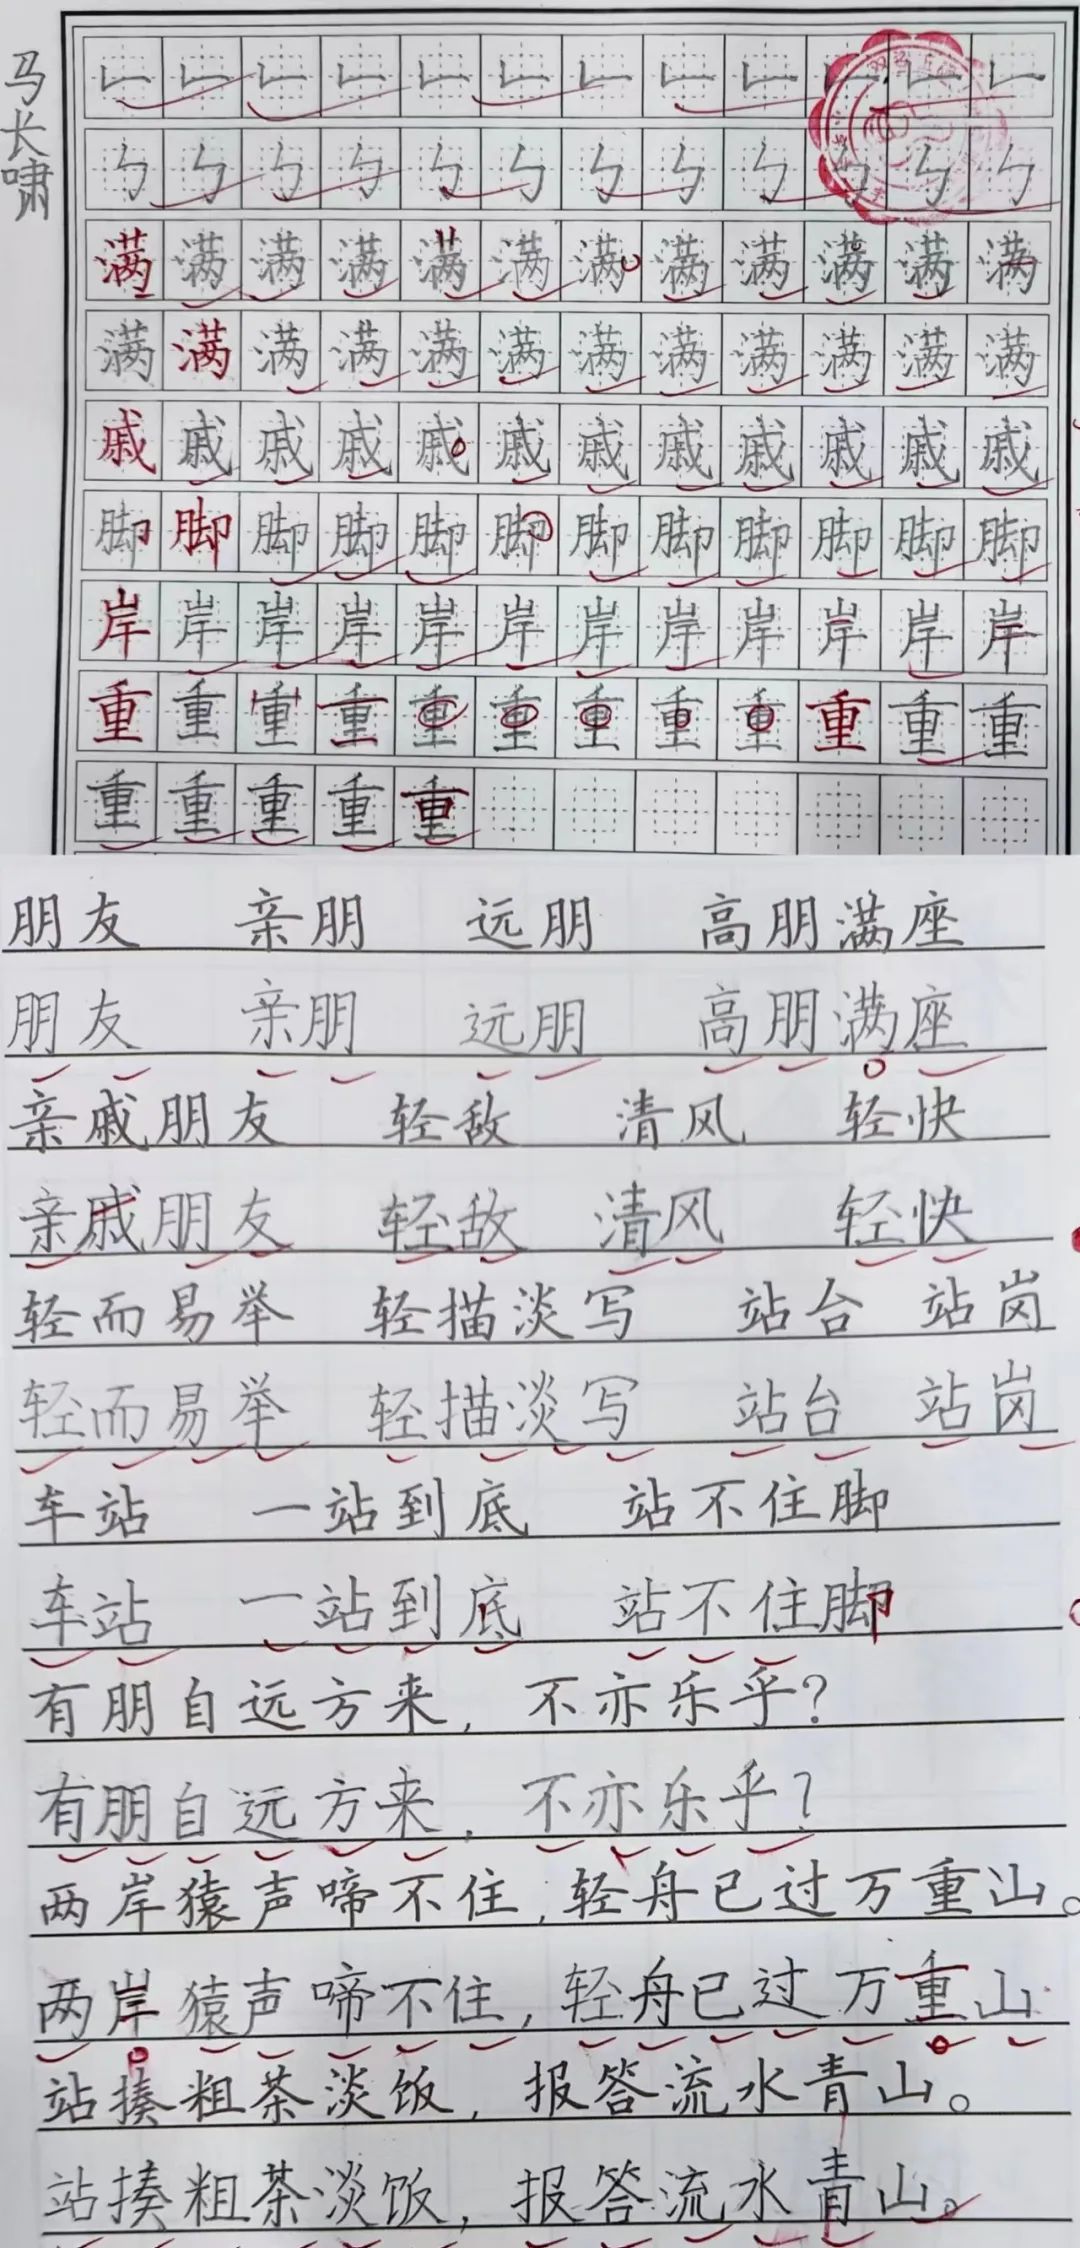 马长啸
𠂉 𠂉 𠂉 𠂉 𠂉 𠂉 𠂉 𠂉 𠂉 𠂉 𠂉 𠂉
满 满 满 满 满 满 满 满 满 满 满 满
满 满 满 满 满 满 满 满 满 满 满 满
戚 戚 戚 戚 戚 戚 戚 戚 戚 戚 戚 戚
脚 脚 脚 脚 脚 脚 脚 脚 脚 脚 脚 脚
岸 岸 岸 岸 岸 岸 岸 岸 岸 岸 岸 岸
重 重 重 重 重 重 重 重 重 重 重 重
重 重 重 重 重
朋友 亲朋 远朋 高朋满座
朋友 亲朋 远朋 高朋满座
亲戚朋友 轻敌 清风 轻快
亲戚朋友 轻敌 清风 轻快
轻而易举 轻描淡写 站台 站岗
轻而易举 轻描淡写 站台 站岗
车站 一站到底 站不住脚
车站 一站到底 站不住脚
有朋自远方来,不亦乐乎?
有朋自远方来,不亦乐乎?
两岸猿声啼不住,轻舟已过万重山。
两岸猿声啼不住,轻舟已过万重山
站揍粗茶淡饭,报答流水青山。
站揍粗茶淡饭,报答流水青山。